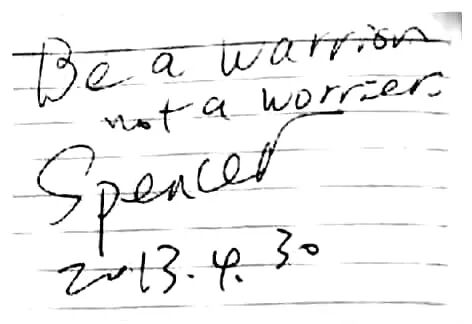 Be a warrior
not a worrier.
Spencer
2013.4.30